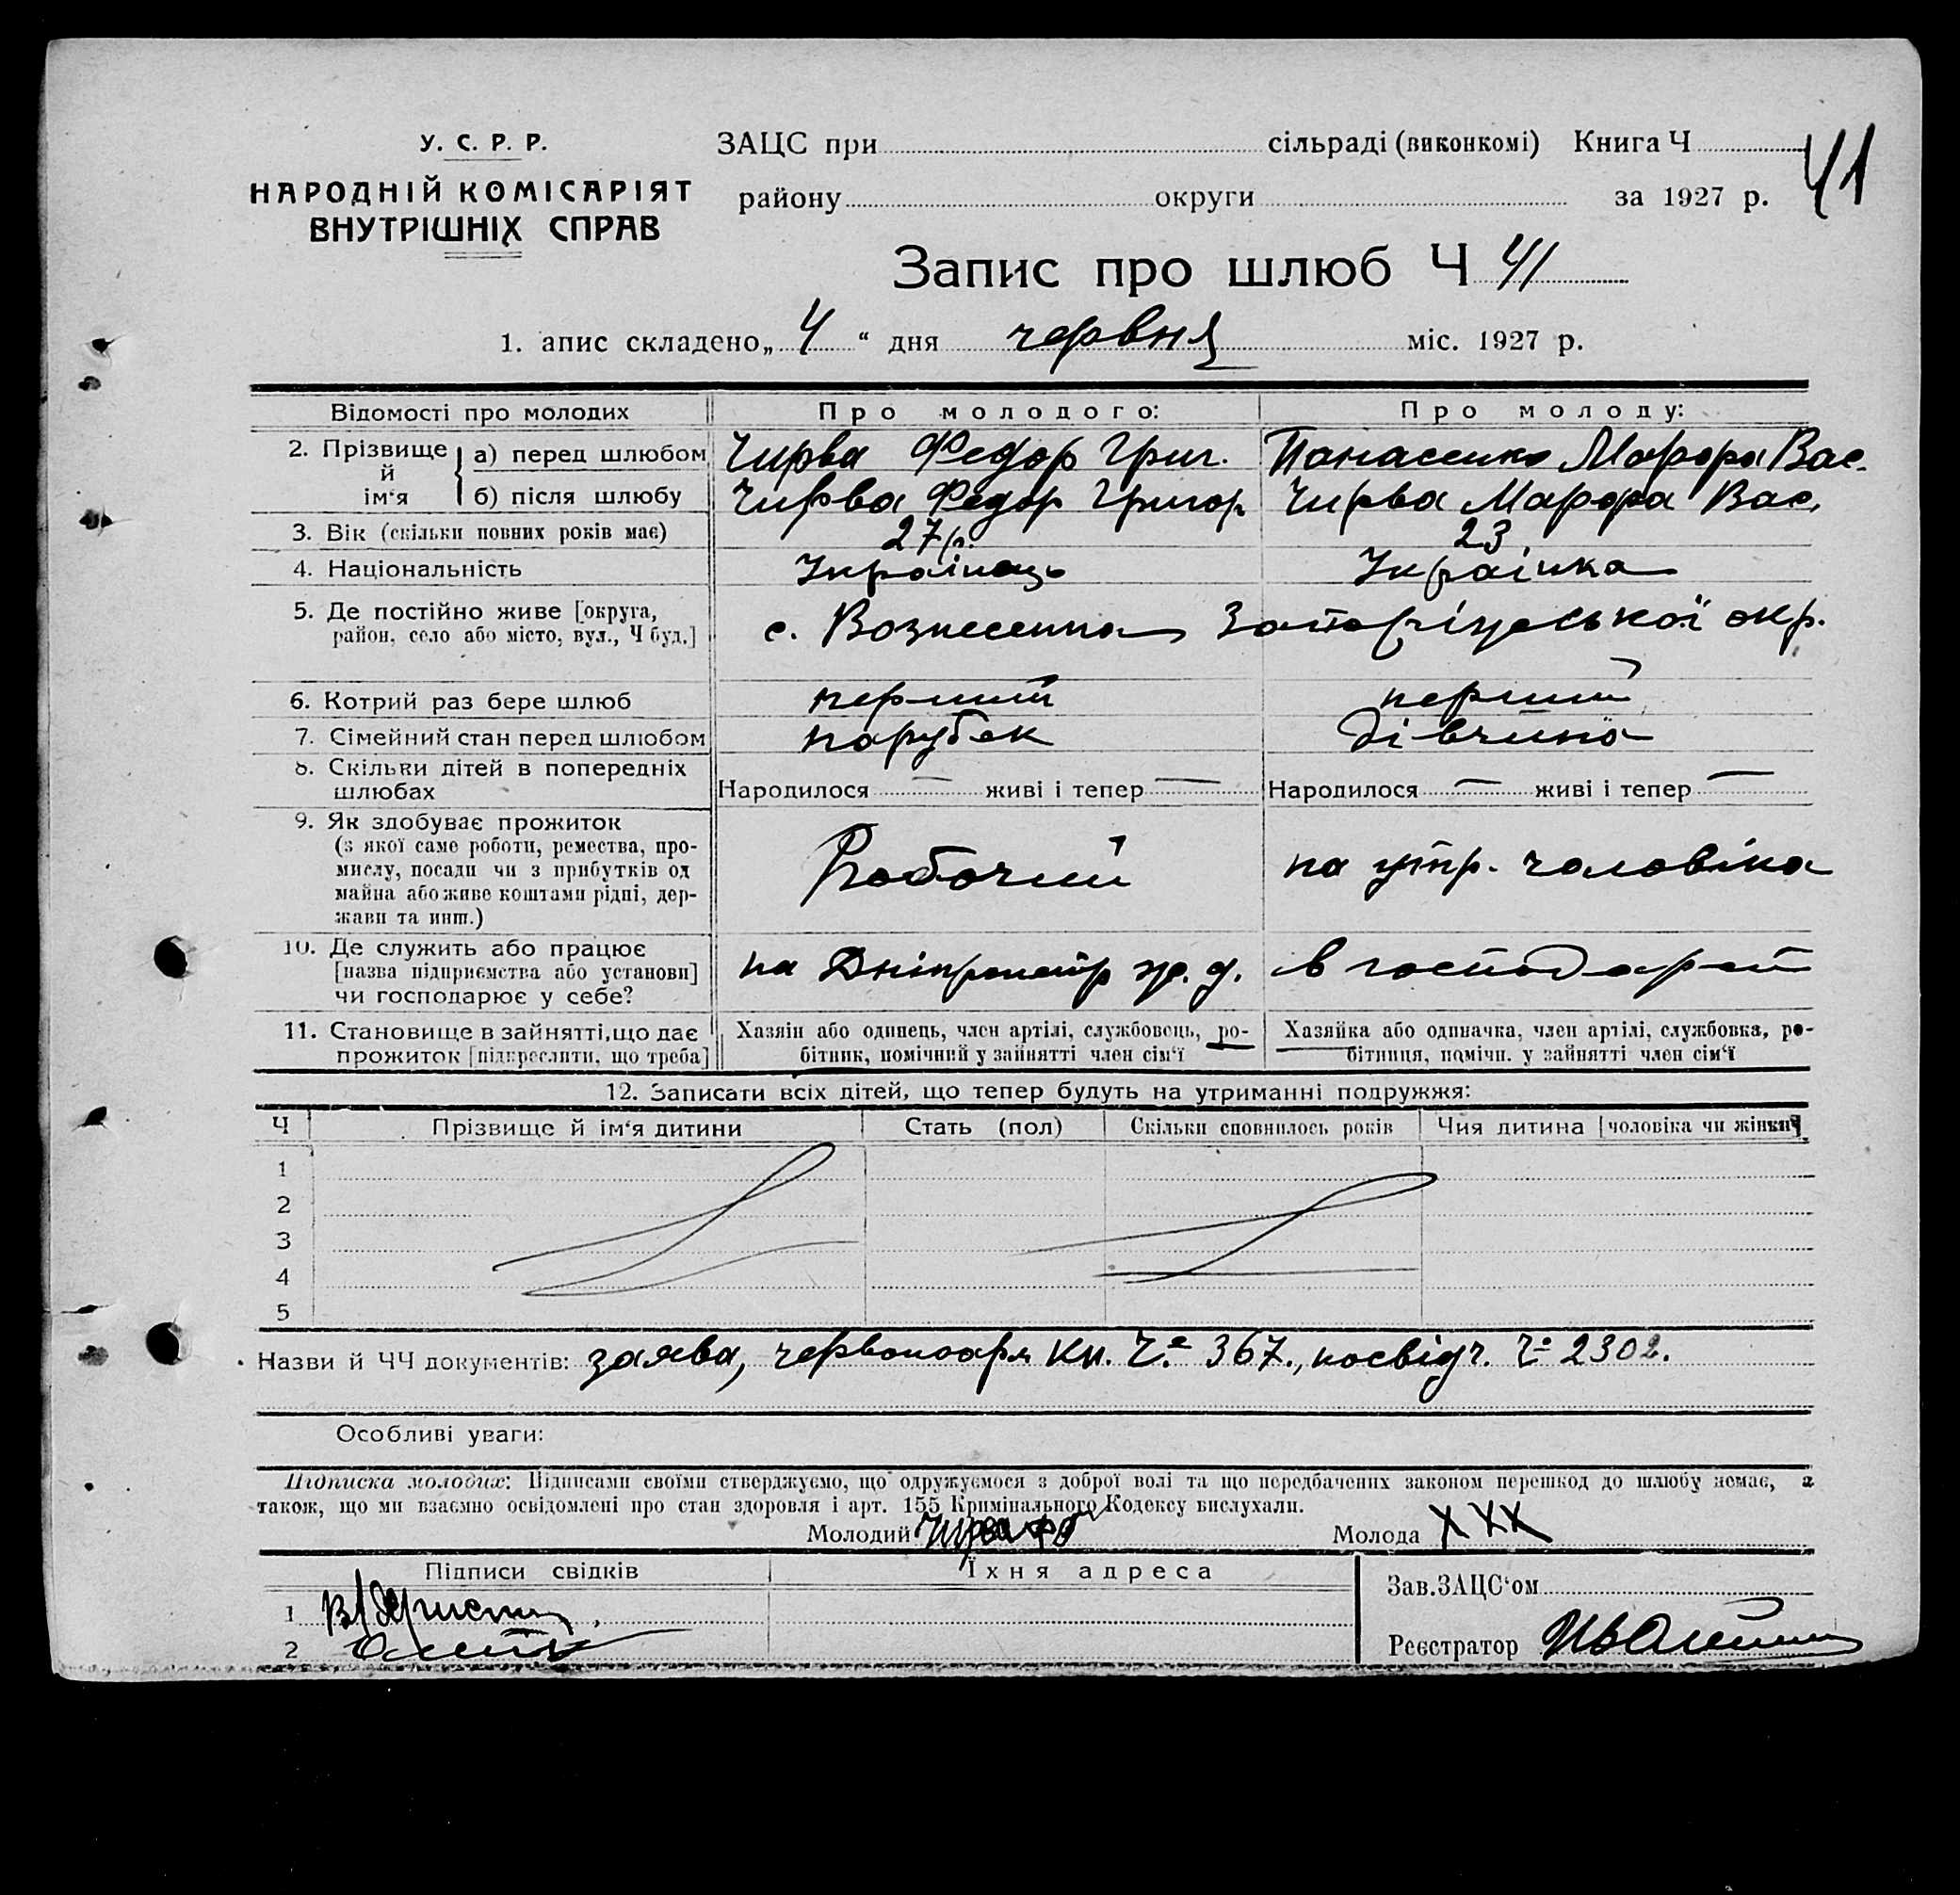 У. С. Р. Р.
НАРОДНІЙ КОМІСАРІЯТ
ВНУТРІШНІХ СПРАВ
ЗАЦС при сільраді (виконкомі) Книга Ч 41
району округи за 1927 р.
Запис про шлюб Ч 41
1. апис складено „ 4 “ дня червня міс. 1927 р.
Відомості про молодих Про молодого: Про молоду:
2. Прізвище й ім‘я
а) перед шлюбом Чирва Федор Григ. Панасенко Марфа Вас.
б) після шлюбу Чирва Федор Григор. Чирва Марфа Вас.
3. Вік (скільки повних років має) 27 р. 23
4. Національність Українець Українка
5. Де постійно живе [округа,
район, село або місто, вул., Ч буд.] с. Вознесенка Запоріцької окр.
6. Котрий раз бере шлюб перший перший
7. Сімейний стан перед шлюбом порубок дівчина
8. Скільки дітей в попередніх
шлюбах Народилося — живі і тепер — Народилося — живі і тепер —
9. Як здобуває прожиток
(з якої саме роботи, ремества, про-
мислу, посади чи з прибутків од
майна або живе коштами рідні, дер-
жави та инш.)
Робочий на утр. чоловіка
10. Де служить або працює
[назва підприємства або установи]
чи господарює у себе?
на в господарст
11. Становище в зайнятті, що дає
прожиток [підкреслити, що треба]
Хазяін або одинець, член артілі, службовець, ро-
бітник, помічний у зайнятті член сім‘ї
Хазяйка або одиначка, член артілі, службовка, ро-
бітниця, помічн. у зайнятті член сім‘ї
12. Записати всіх дітей, що тепер будуть на утриманні подружжя:
Ч Прізвище й ім‘я дитини Стать (пол) Скільки сповнилось років Чия дитина [чоловіка чи жінки]
1
2
3
4
5
Назви й ЧЧ документів: заява, червоноарм кн. Ч. 367., посвідч. Ч 2302.
Особливі уваги:
Підписка молодих: Підписами своїми стверджуємо, що одружуємося з доброї волі та що передбачених законом перешкод до шлюбу немає, а
також, що ми взаємно освідомлені про стан здоровля і арт. 155 Кримінального Кодексу вислухали.
Молодий Чирва Молода ХХХ
Підписи свідків Їхня адреса
Зав.ЗАЦС‘ом
1
2
Реєстратор